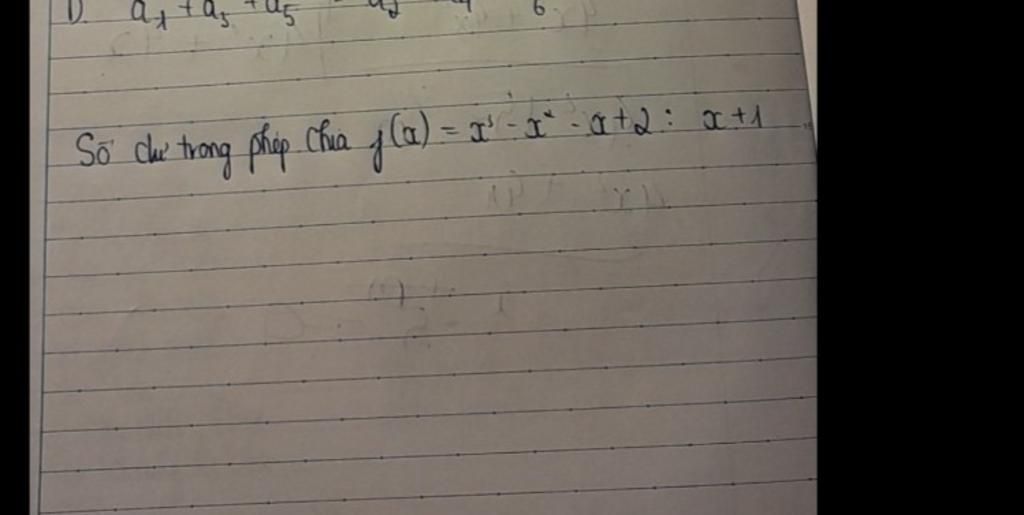 D. a₁ + a₃ + a₅
Số dư trong phép chia f(x) = x³ - x² - x + 2 : x + 1